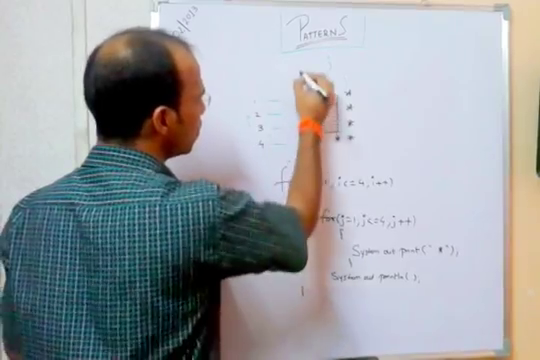 /2013
PATTERNS
*
2 *
3 *
4 * *
f 1, i<=4, i++)
for(j=1, j<=4, j++)
{
System out print(" * ");
}
System out println( );